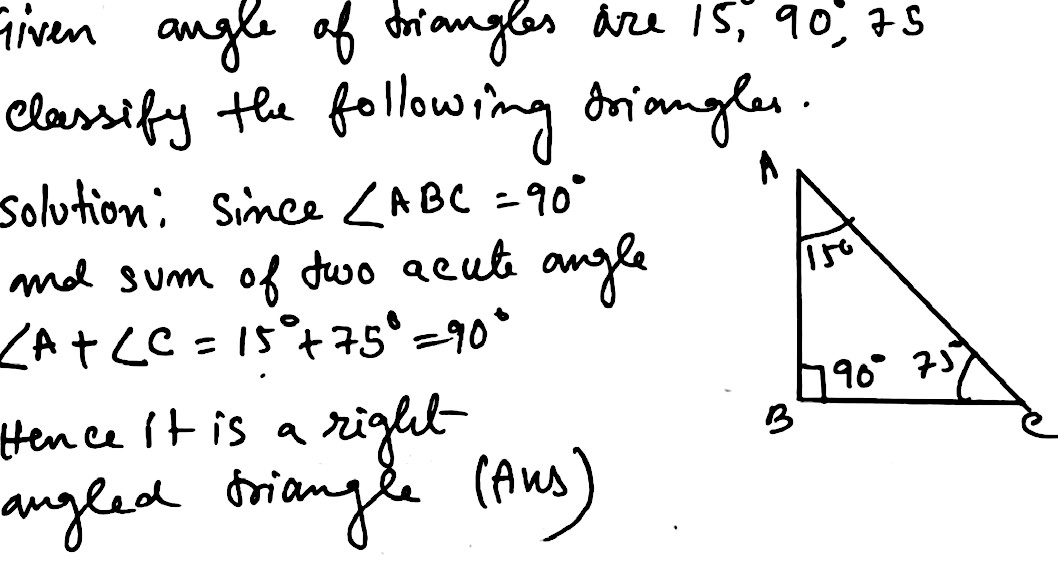 Given angle of triangles are 15°, 90°, 75
classify the following triangles.
solution: since ∠ABC = 90°
and sum of two acute angle
∠A + ∠C = 15° + 75° = 90°
Hence it is a right
angled triangle (Ans)
A
15°
90° 75°
B
C